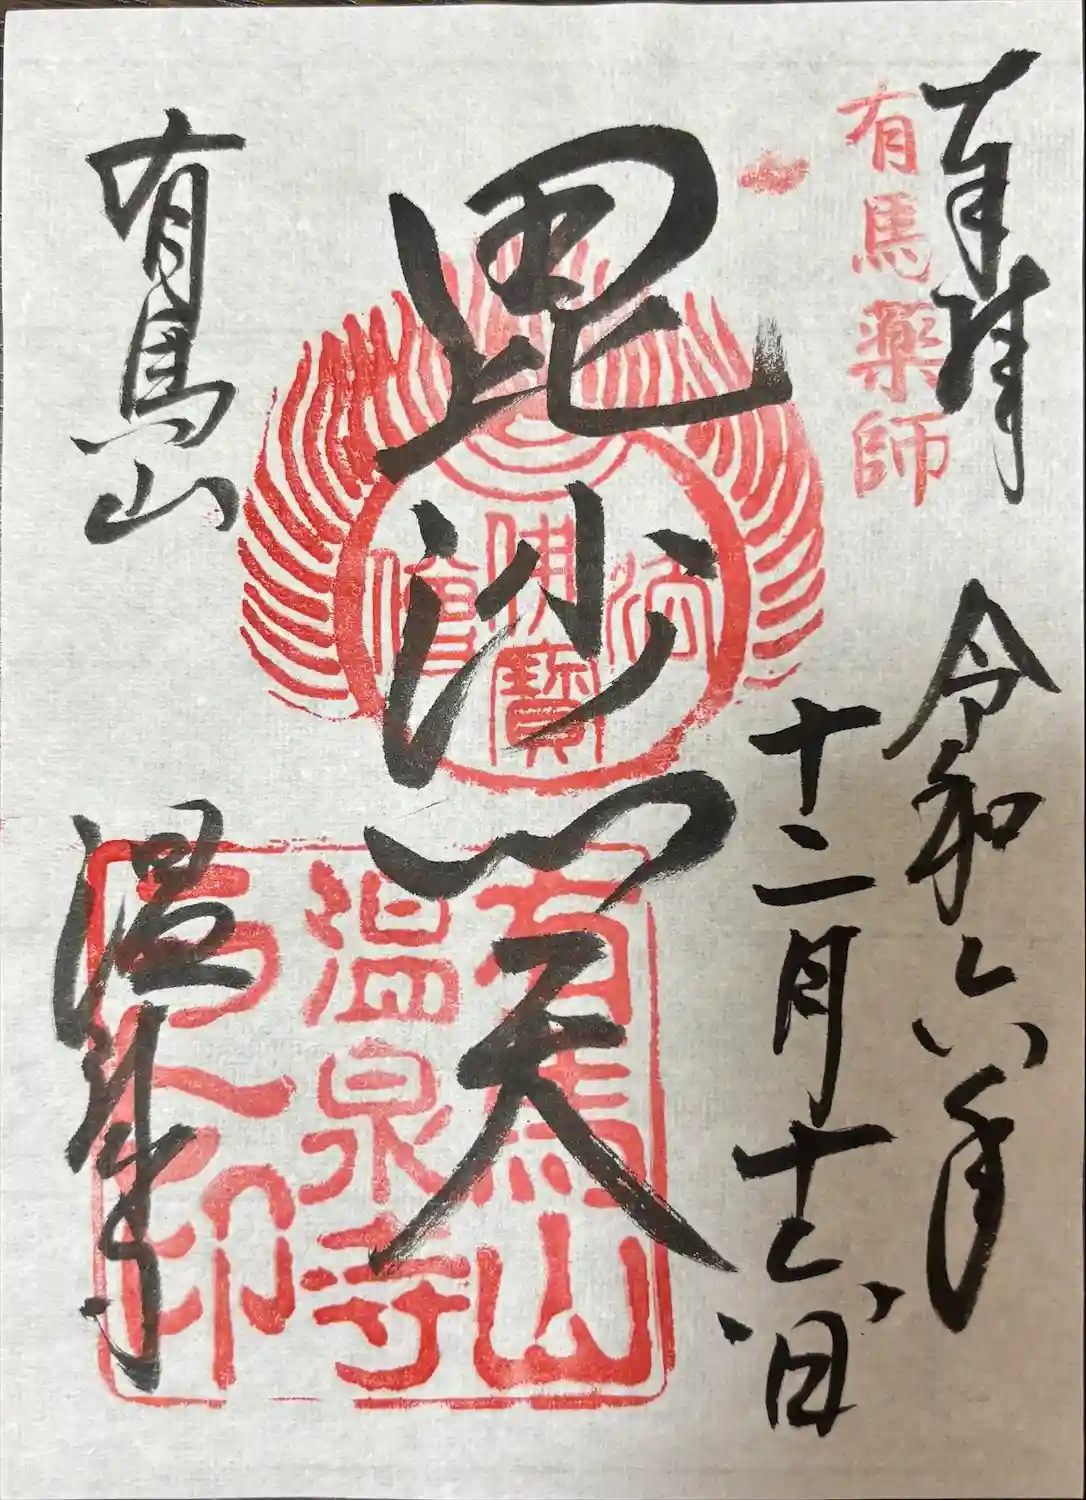 奉拝
有馬薬師
令和六年
十二月十六日
毘沙門天
佛
法
僧
寳
有馬山
温泉寺
有馬山
温泉寺
之印